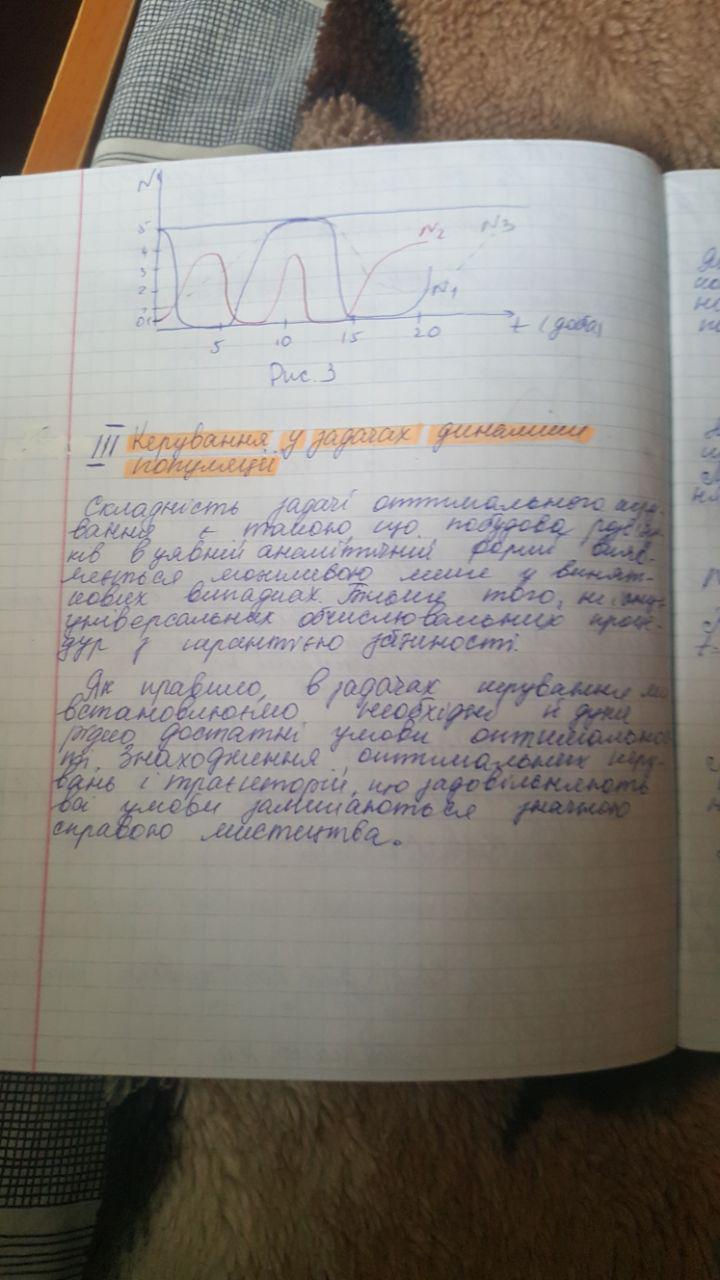 N
5
4
3
2
1
0
N2
N3
N1
5 10 15 20 t (доба)
Рис. 3
III Керування у задачах динаміки
популяції
Складність задачі оптимального керу-
вання є такою, що побудова розв'яз-
ків в уявній аналітичній формі вияв-
ляється можливою лише у винят-
кових випадках. Більше того, не існує
універсальних обчислювальних проце-
дур з гарантією збіжності.
Як правило, в задачах керування ми
встановлюємо необхідні й дуже
рідко достатні умови оптимально-
сті. Знаходження оптимальних керу-
вань і траєкторій, що задовільняють
ці умови залишаються значною
справою мистецтва.